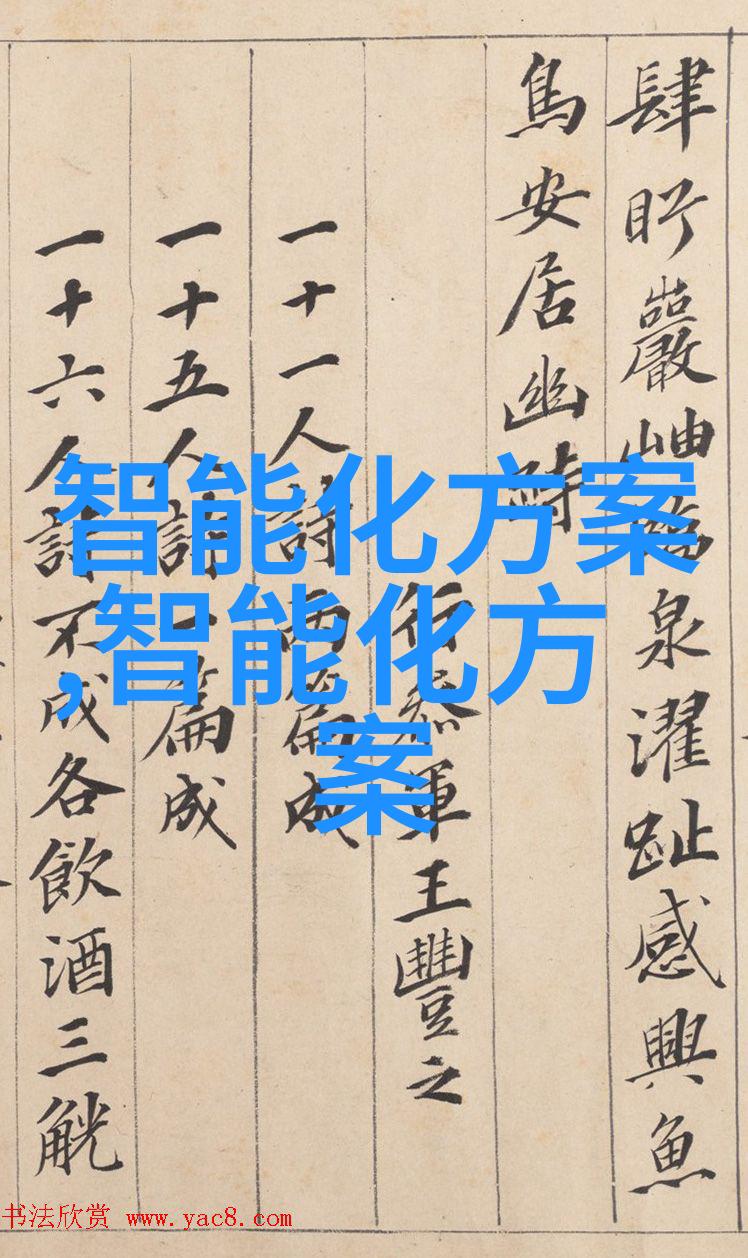 肆盻巖岫臨泉濯趾感興魚
鳥安居幽峙
行叅軍王豐之
一十一人詩兩篇成
一十五人詩一篇成
一十六人詩不成各飲酒三觥
智能化方案
,智能化方
案
书法欣赏 www.yac8.com